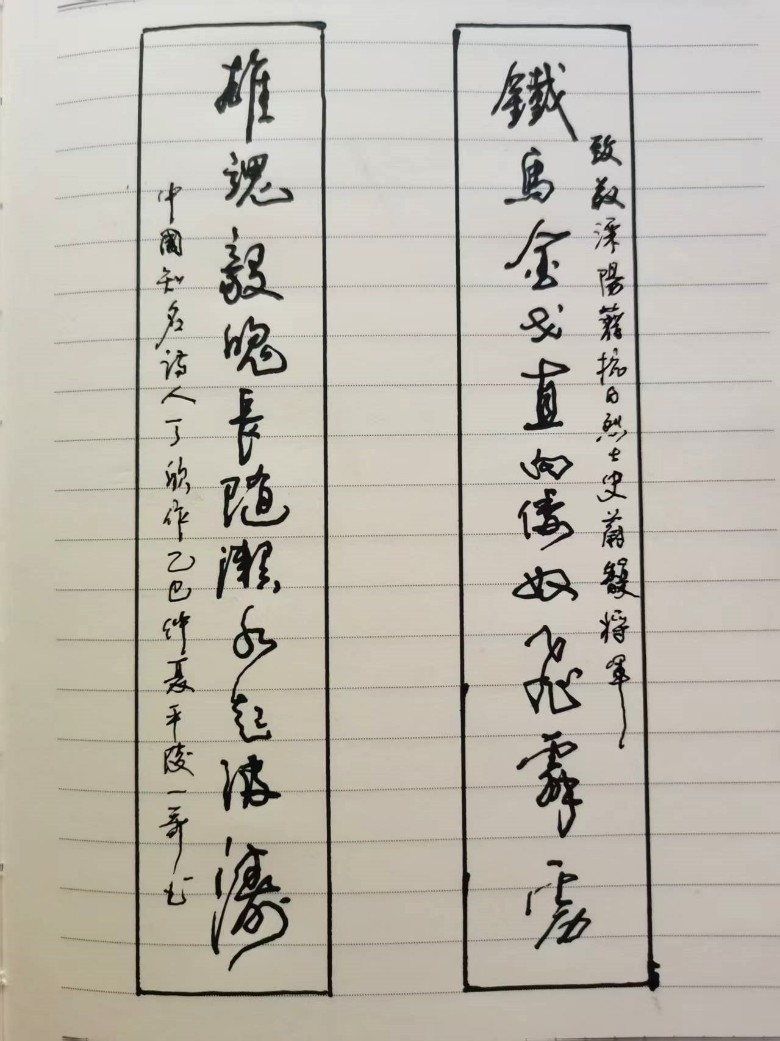 致敬溧陽籍抗日烈士史蔚馥将軍
鐵馬金戈直向倭奴飛霹雳
雄魂毅魄長隨瀨水起波濤
中國知名詩人丁欣作乙巳仲夏平陵一哥书